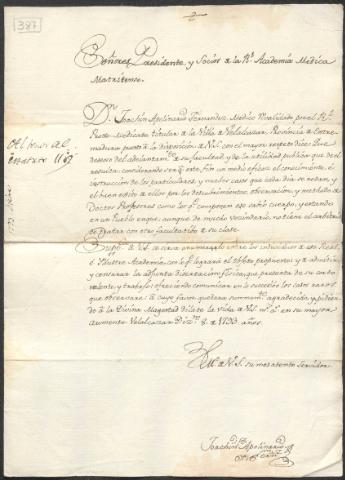 387
Señores Presidente, y Socios de la Rl. Academia Medica
Matritense.
Dn. Joachin Apolinario Fernandez Medico revalidado por el Rl.
Proto Medicato titular de la Villa de Velalcazar Provincia de Estre-
madura puesto a la disposicion de V.S. con el mayor respeto dice: Que
deseoso del adelantamto. de su facultad, y de la utilidad publica que de el
resulta: considerando ser a este fin un medio eficaz el conocimiento, e
instruccion de los particulares, y nuebos casos que cada dia se notan, y
el bien
de Doctos Profesores como los qe. componen ese sabio cuerpo, y estando
en un Pueblo en que, aunque de mucho vecindario, no tiene el arbitrio
de tratar con otro facultativo de su clase.
Suppca. a V.S. se sirva enumerarlo entre los individuos de esa Real,
e Ilustre Academia, con lo qe. lograra el objeto propuesto; y admitir,
y censurar la adjunta disertacion fisica, que presenta de su corto
talento, y trabajo; ofreciendo comunicar en lo sucesivo los casos raros
que observare: a cuyo favor quedara summamte. agradecido, y pidien-
do a la Divina Magestad dilate la vida de V.S. ms. as. en su mayor
aumento. Velalcazar Dizre. 8. de 1793. años.
B. L. M. de V.S. su mas atento Servidor
Joachin Apolinario
Fernz.